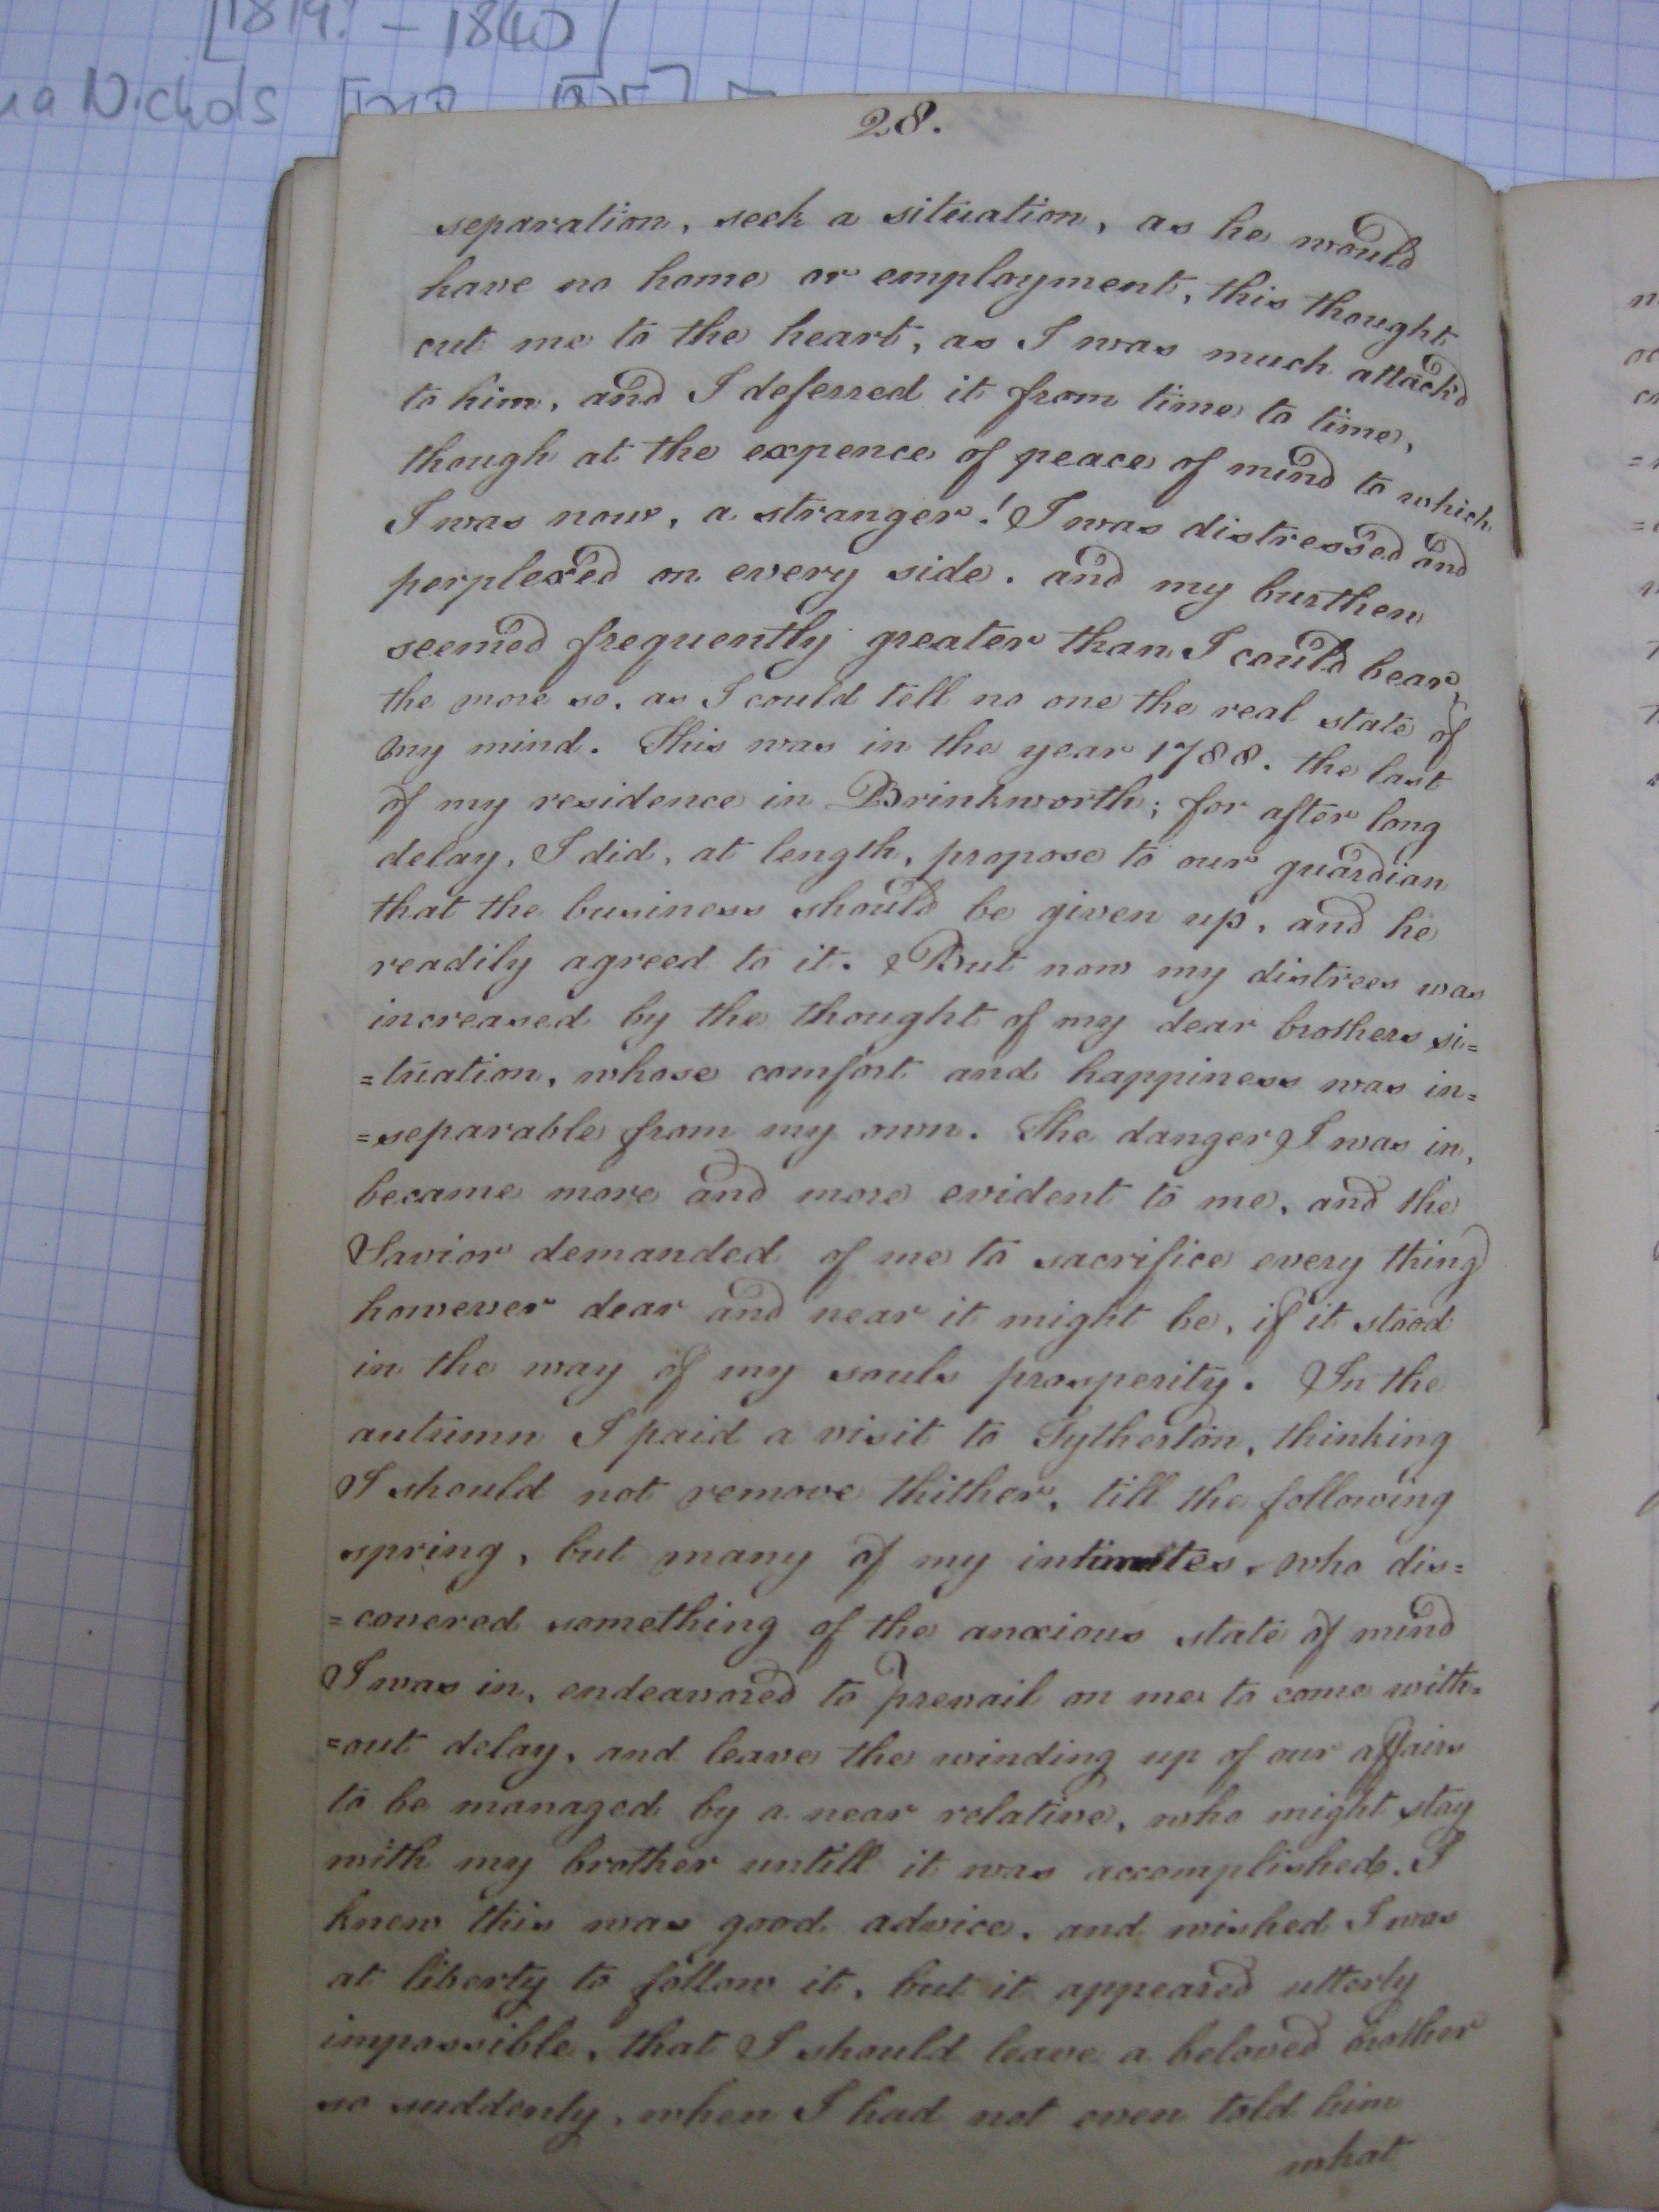 [1819? - 1840]
Nichols
28.
separation, seek a situation, as he would
have no home or employment, this thought
cut me to the heart, as I was much attach'd
to him, and I deferred it from time to time,
though at the expence of peace of mind to which
I was now, a stranger! I was distressed and
perplexed on every side. and my burthen
seemed frequently greater than I could bear,
the more so. as I could tell no one the real state of
my mind. This was in the year 1788. the last
of my residence in Brinkworth; for after long
delay, I did, at length, propose to our guardian
that the business should be given up, and he
readily agreed to it. But now my distress was
increased by the thought of my dear brothers si=
=tuation, whose comfort and happiness was in=
=separable from my own. The danger I was in,
became more and more evident to me, and the
Savior demanded of me to sacrifice every thing
however dear and near it might be, if it stood
in the way of my souls prosperity. In the
autumn I paid a visit to Tytherton, thinking
I should not remove thither, till the following
spring, but many of my intimates, who dis=
=covered something of the anxious state of mind
I was in, endeavored to prevail on me to come with=
=out delay, and leave the winding up of our affairs
to be managed by a near relative, who might stay
with my brother untill it was accomplished. I
knew this was good advice. and wished I was
at liberty to follow it, but it appeared utterly
impossible, that I should leave a beloved brother
so suddenly, when I had not even told him
what